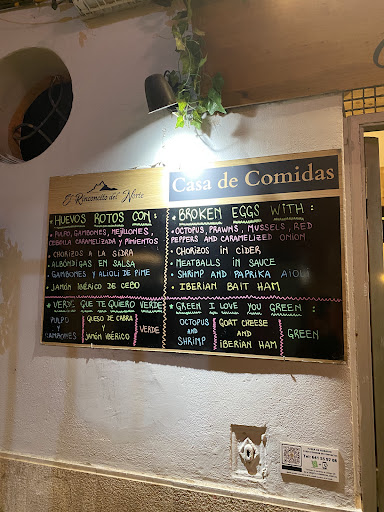 El Rinconcito del Norte
HUEVOS ROTOS CON:
PULPO, GAMBONES, MEJILLONES,
CEBOLLA CARAMELIZADA Y PIMIENTOS
CHORIZOS A LA SIDRA
ALBÓNDIGAS EN SALSA
GAMBONES Y ALIOLI DE PIME
JAMÓN IBÉRICO DE CEBO
VERDE QUE TE QUIERO VERDE
PULPO
Y
GAMBONES
QUESO DE CABRA
Y
JAMÓN IBÉRICO
VERDE
Casa de Comidas
BROKEN EGGS WITH:
OCTOPUS, PRAWNS, MUSSELS, RED
PEPPERS AND CARAMELIZED ONION
CHORIZOS IN CIDER
MEATBALLS IN SAUCE
SHRIMP AND PAPRIKA AIOLI
IBERIAN BAIT HAM
GREEN I LOVE YOU GREEN:
OCTOPUS
AND
SHRIMP
GOAT CHEESE
AND
IBERIAN HAM
GREEN